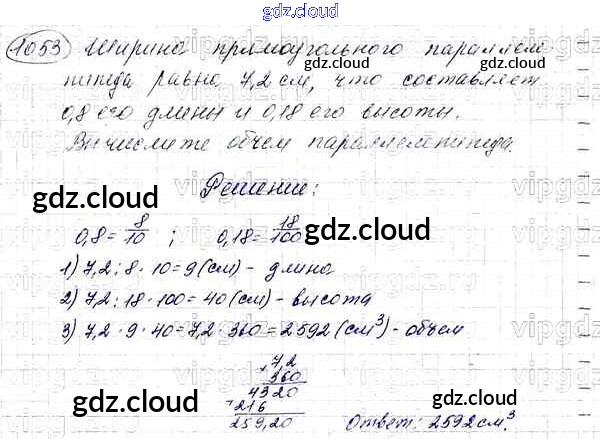 gdz.cloud
1053 Ширина прямоугольного параллеле-
пипеда равна 7,2 см, что составляет
0,8 его длины и 0,18 его высоты.
Вычислите объем параллелепипеда.
Решение:
0,8 = 8/10 ; 0,18 = 18/100
1) 7,2 : 8 · 10 = 9 (см) - длина
2) 7,2 : 18 · 100 = 40 (см) - высота
3) 7,2 · 9 · 40 = 7,2 · 360 = 2592 (см³) - объем
× 7,2
360
4320
+ 216
2592,0
Ответ: 2592 см³
gdz.cloud
gdz.cloud
gdz.cloud
gdz.cloud
gdz.cloud
gdz.cloud
gdz.cloud
gdz.cloud